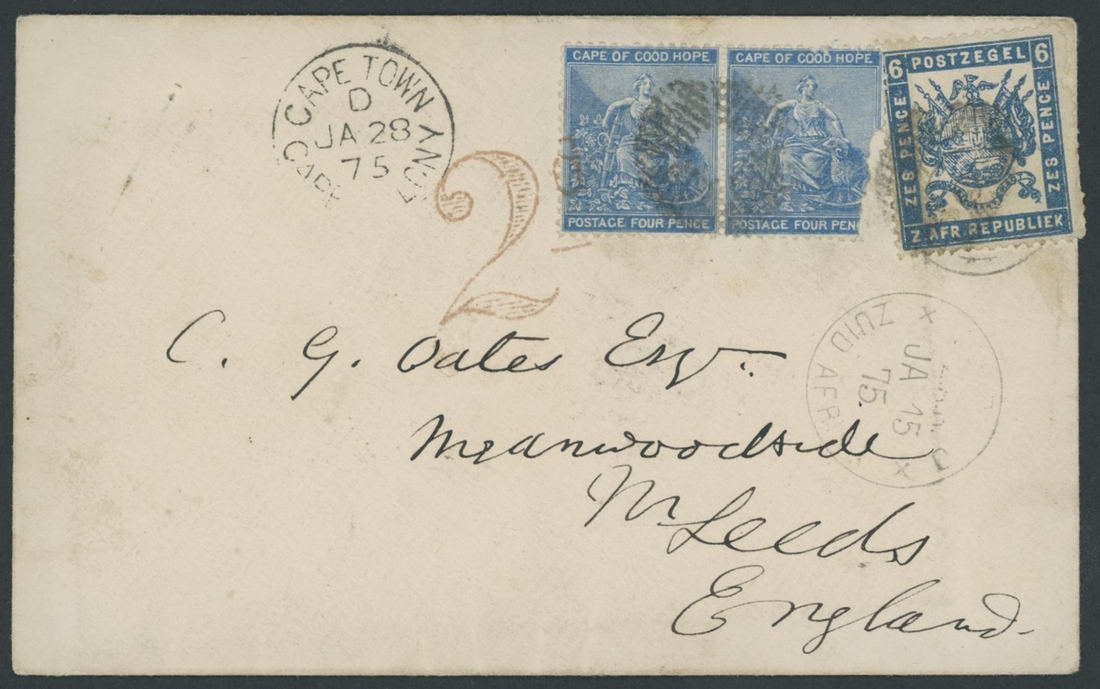 CAPE TOWN
D
JA 28
75
CAPE COLONY
2
CAPE OF GOOD HOPE
POSTAGE FOUR PENCE
CAPE OF GOOD HOPE
POSTAGE FOUR PEN
6 POSTZEGEL 6
ZES PENCE
ZES PENCE
Z. AFR. REPUBLIEK
ZUID AFR
JA 15
75
C. G. Oates Esqr.
Meanwoodside
Nr Leeds
England.